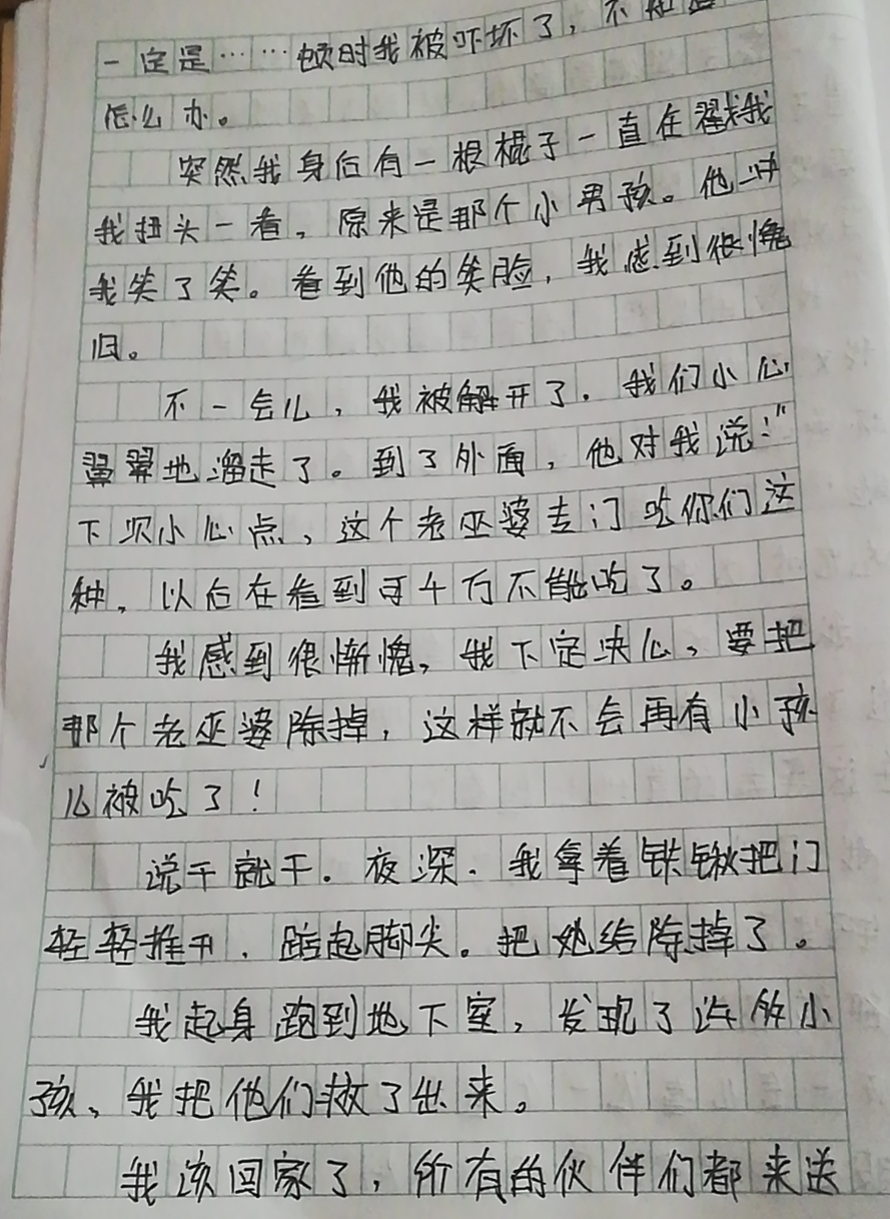 一定是……顿时我被吓坏了，不知道
怎么办。
突然我身后有一根棍子一直在戳我
我扭头一看，原来是那个小男孩。他冲
我笑了笑。看到他的笑脸，我感到很愧
旧。
不一会儿，我被解开了．我们小心
翼翼地溜走了。到了外面，他对我说："
下次小心点、这个老巫婆专门吃你们这
种，以后在看到可千万不能吃了。
我感到很惭愧，我下定决心、要把
那个老巫婆除掉，这样就不会再有小孩
儿被吃了！
说干就干．夜深．我拿着铁锹把门
轻轻推开．踮起脚尖。把她给除掉了。
我起身跑到地下室，发现了许多小
孩、我把他们救了出来。
我该回家了，所有的伙伴们都来送